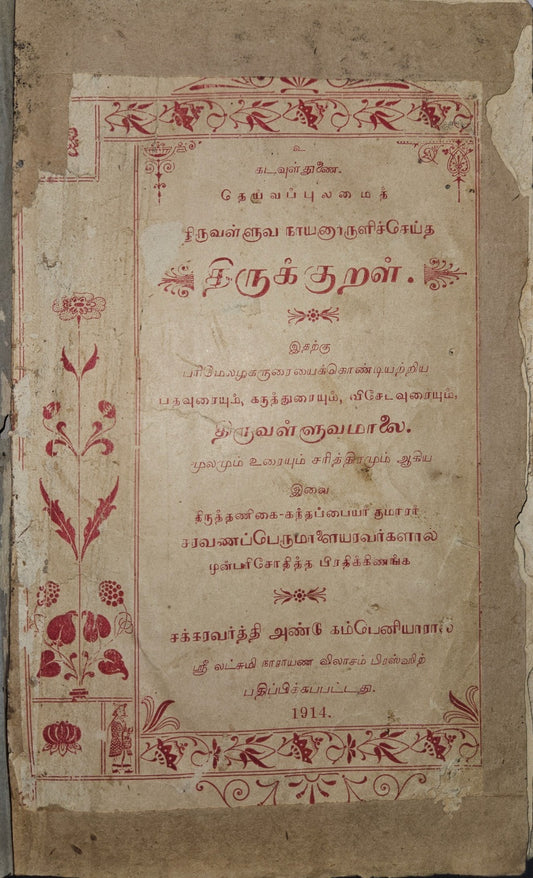 உ
கடவுள் துணை.
தெய்வப்புலமைத்
திருவள்ளுவ நாயனாருளிச்செய்த
திருக்குறள்.
இதற்கு
பரிமேலழகருரையைக்கொண்டியற்றிய
பதவுரையும், கருத்துரையும், விசேடவுரையும்,
திருவள்ளுவமாலை.
மூலமும் உரையும் சரித்திரமும் ஆகிய
இவை
திருத்தணிகை-கந்தப்பையர் குமாரர்
சரவணப்பெருமாளையரவர்களால்
முன்பரிசோதித்த பிரதிக்கிணங்க
சக்கரவர்த்தி அண்டு கம்பெனியாரால்
ஸ்ரீ லட்சுமி நாராயண விலாசம் பிரஸ்ஸில்
பதிப்பிக்கப்பட்டது.
1914.